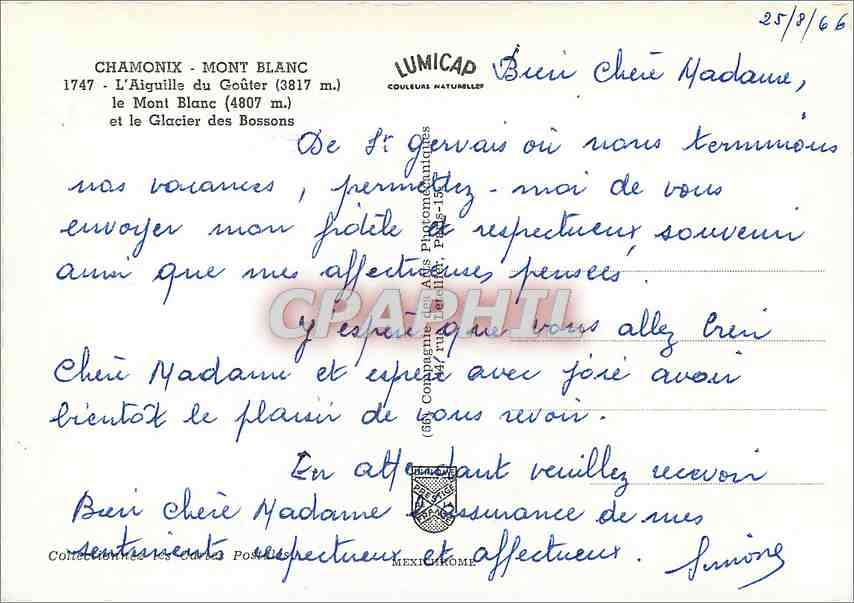 25/8/66
CHAMONIX - MONT BLANC
1747 - L'Aiguille du Goûter (3817 m.)
le Mont Blanc (4807 m.)
et le Glacier des Bossons
LUMICAP
COULEURS NATURELLES
Bien Chère Madame,
De St Gervais où nous terminons
nos vacances, permettez-moi de vous
envoyer mon fidèle et respectueux souvenir
ainsi que mes affectueuses pensées.
J'espère que vous allez bien
Chère Madame et espère avec joie avoir
bientôt le plaisir de vous revoir.
En attendant veuillez recevoir
Bien Chère Madame l'assurance de mes
sentiments respectueux et affectueux. Simone
CPAPHIL
(66) Compagnie des Arts Photomécaniques
44, rue Letellier, Paris-15
PRESTIGE
Collectionnez les Cartes Postales
MEXICHROME